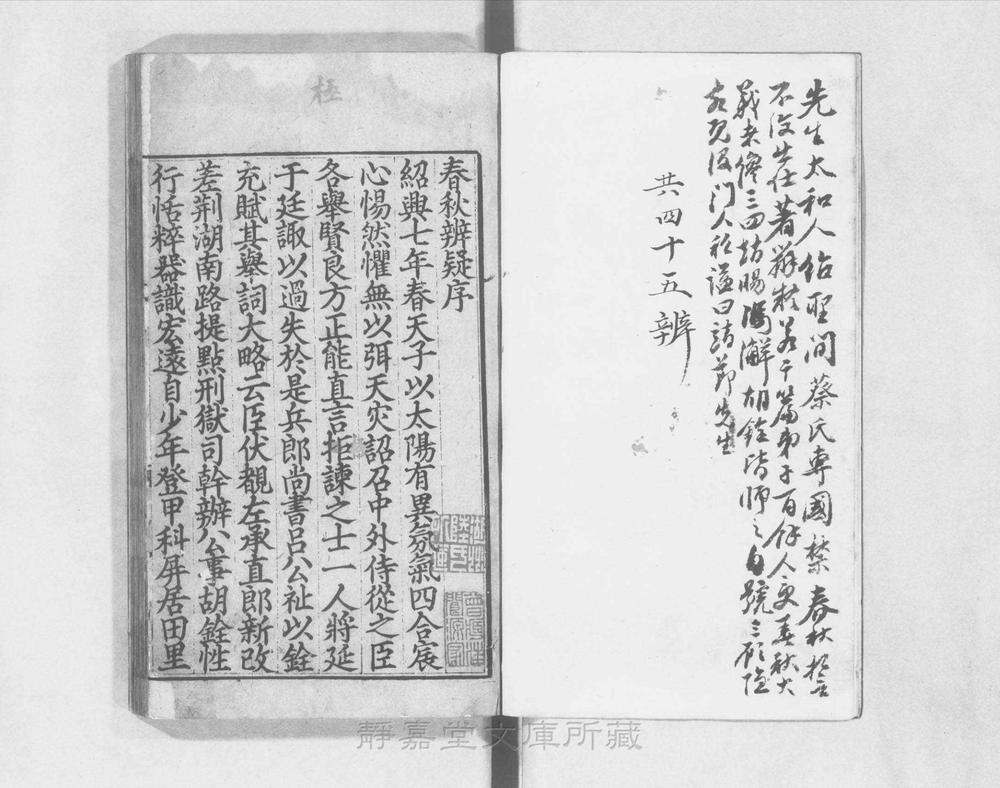 先生太和人紹聖間蔡氏專國禁春秋於是誓
不復出仕著辨疑若干篇弟子百餘人更
胡銓皆師之自號三顧隱
客既沒門人私謚曰靖節先生
共四十五辨
春秋辨疑序
紹興七年春天子以太陽有異氛氣四合宸
心惕然懼無以弭天灾詔召中外侍從之臣
各舉賢良方正能直言拒諫之士一人將延
于廷諏以過失於是兵郎尚書呂公祉以銓
充賦其舉詞大略云臣伏覩左承直郎新改
差荆湖南路提點刑獄司幹辦公事胡銓性
行恬粹器識宏遠自少年登甲科屏居田里
靜嘉堂文庫所藏